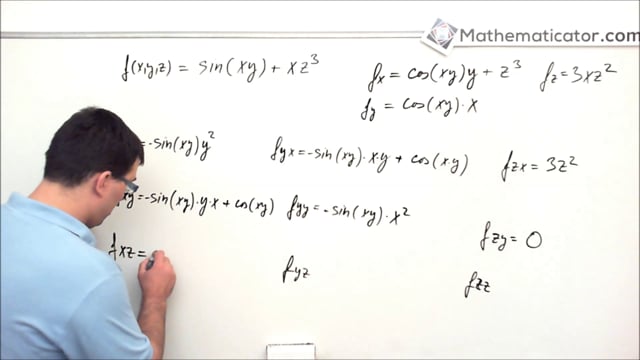 Mathematicator.com
f(x,y,z) = sin(xy) + xz³
fx = cos(xy)y + z³
fz = 3xz²
fy = cos(xy)·x
= -sin(xy)y²
fyx = -sin(xy)·xy + cos(xy)
fzx = 3z²
xy = -sin(xy)·y·x + cos(xy)
fyy = -sin(xy)·x²
fzy = 0
fxz =
fyz
fzz